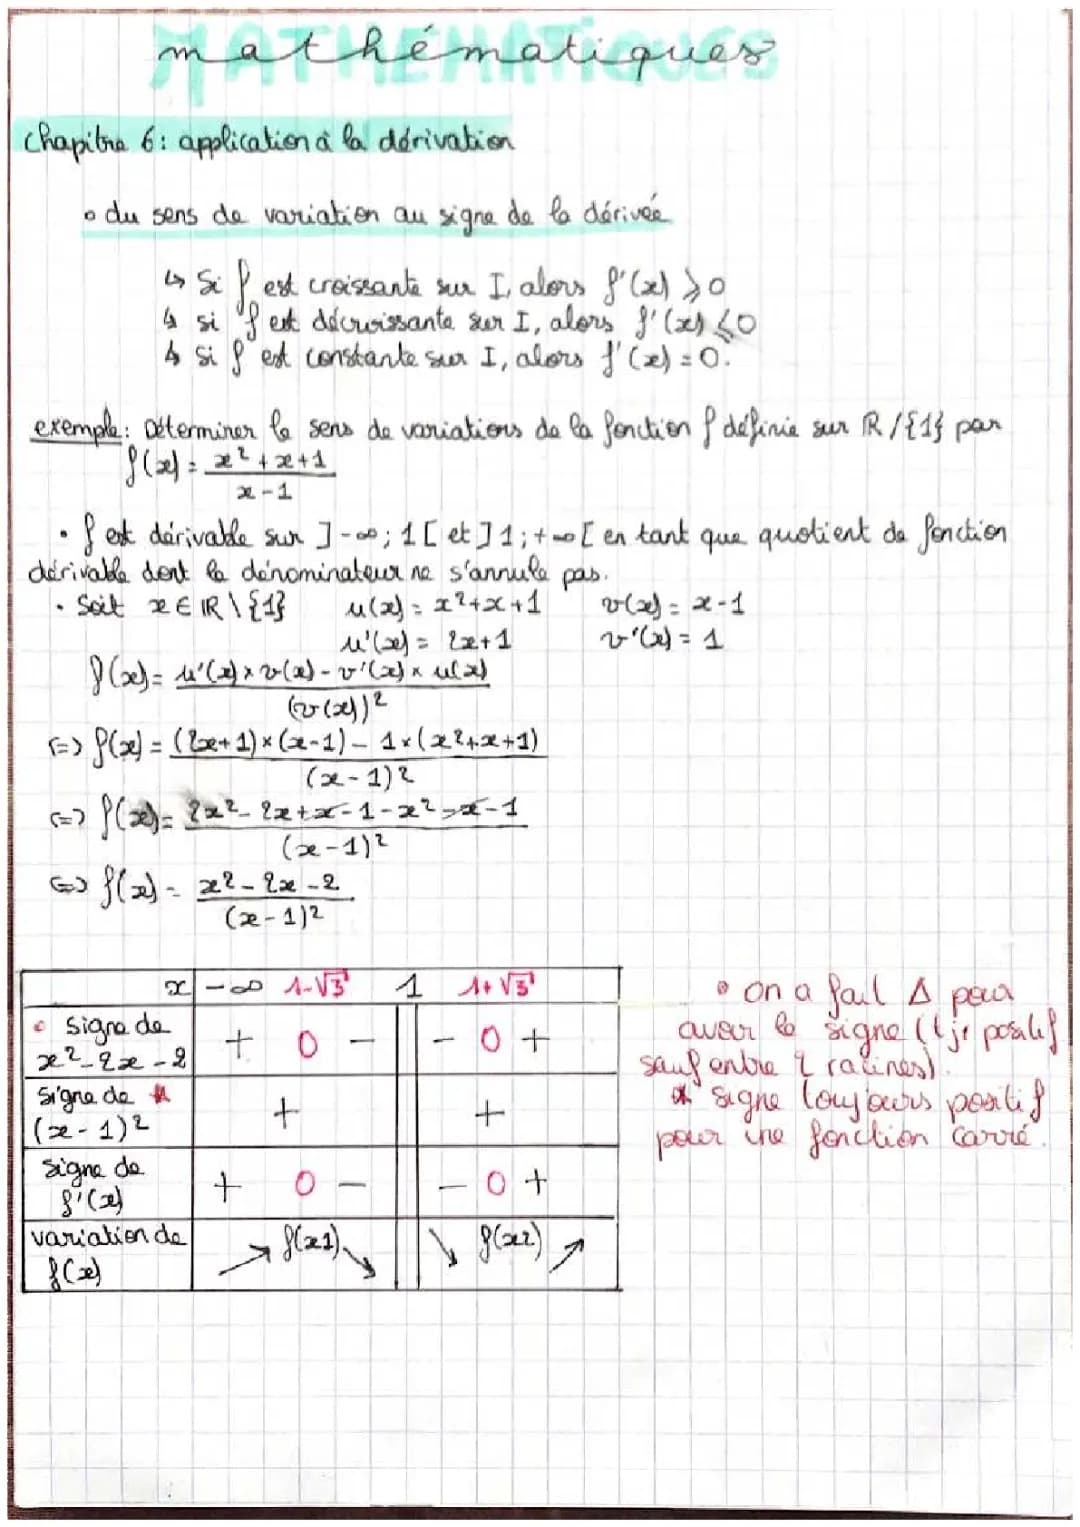 mathématiques
Chapitre 6: application à la dérivation
• du sens de variation au signe de la dérivée
↳ Si f est croissante sur I, alors f'(x) ⩾ 0
↳ si f est décroissante sur I, alors f'(x) ⩽ 0
↳ Si f est constante sur I, alors f'(x) = 0.
exemple: Déterminer le sens de variations de la fonction f définie sur ℝ/{1} par
f(x) = x² + x + 1
x - 1
• f est dérivable sur ]-∞; 1[ et ]1; +∞[ en tant que quotient de fonction
dérivable dont le dénominateur ne s'annule pas.
• Soit x ∈ ℝ\{1} u(x) = x²+x+1 v(x) = x-1
u'(x) = 2x+1 v'(x) = 1
f(x) = u'(x) × v(x) - v'(x) × u(x)
(v(x))²
(=) f(x) = (2x+1) × (x-1) - 1×(x²+x+1)
(x-1)²
(=) f(x) = 2x² - 2x + x - 1 - x² - x - 1
(x-1)²
(=) f(x) = x² - 2x - 2
(x-1)²
x -∞ 1-√3 1 1+√3
• signe de x² - 2x - 2 + 0 - - 0 +
signe de * (x-1)² + +
signe de f'(x) + 0 - - 0 +
variation de f(x) ↗ f(x1) ↘ ↘ f(x2) ↗
• on a fait Δ pour
avoir le signe (tjr positif
sauf entre 2 racines).
* signe toujours positif
pour une fonction carré.